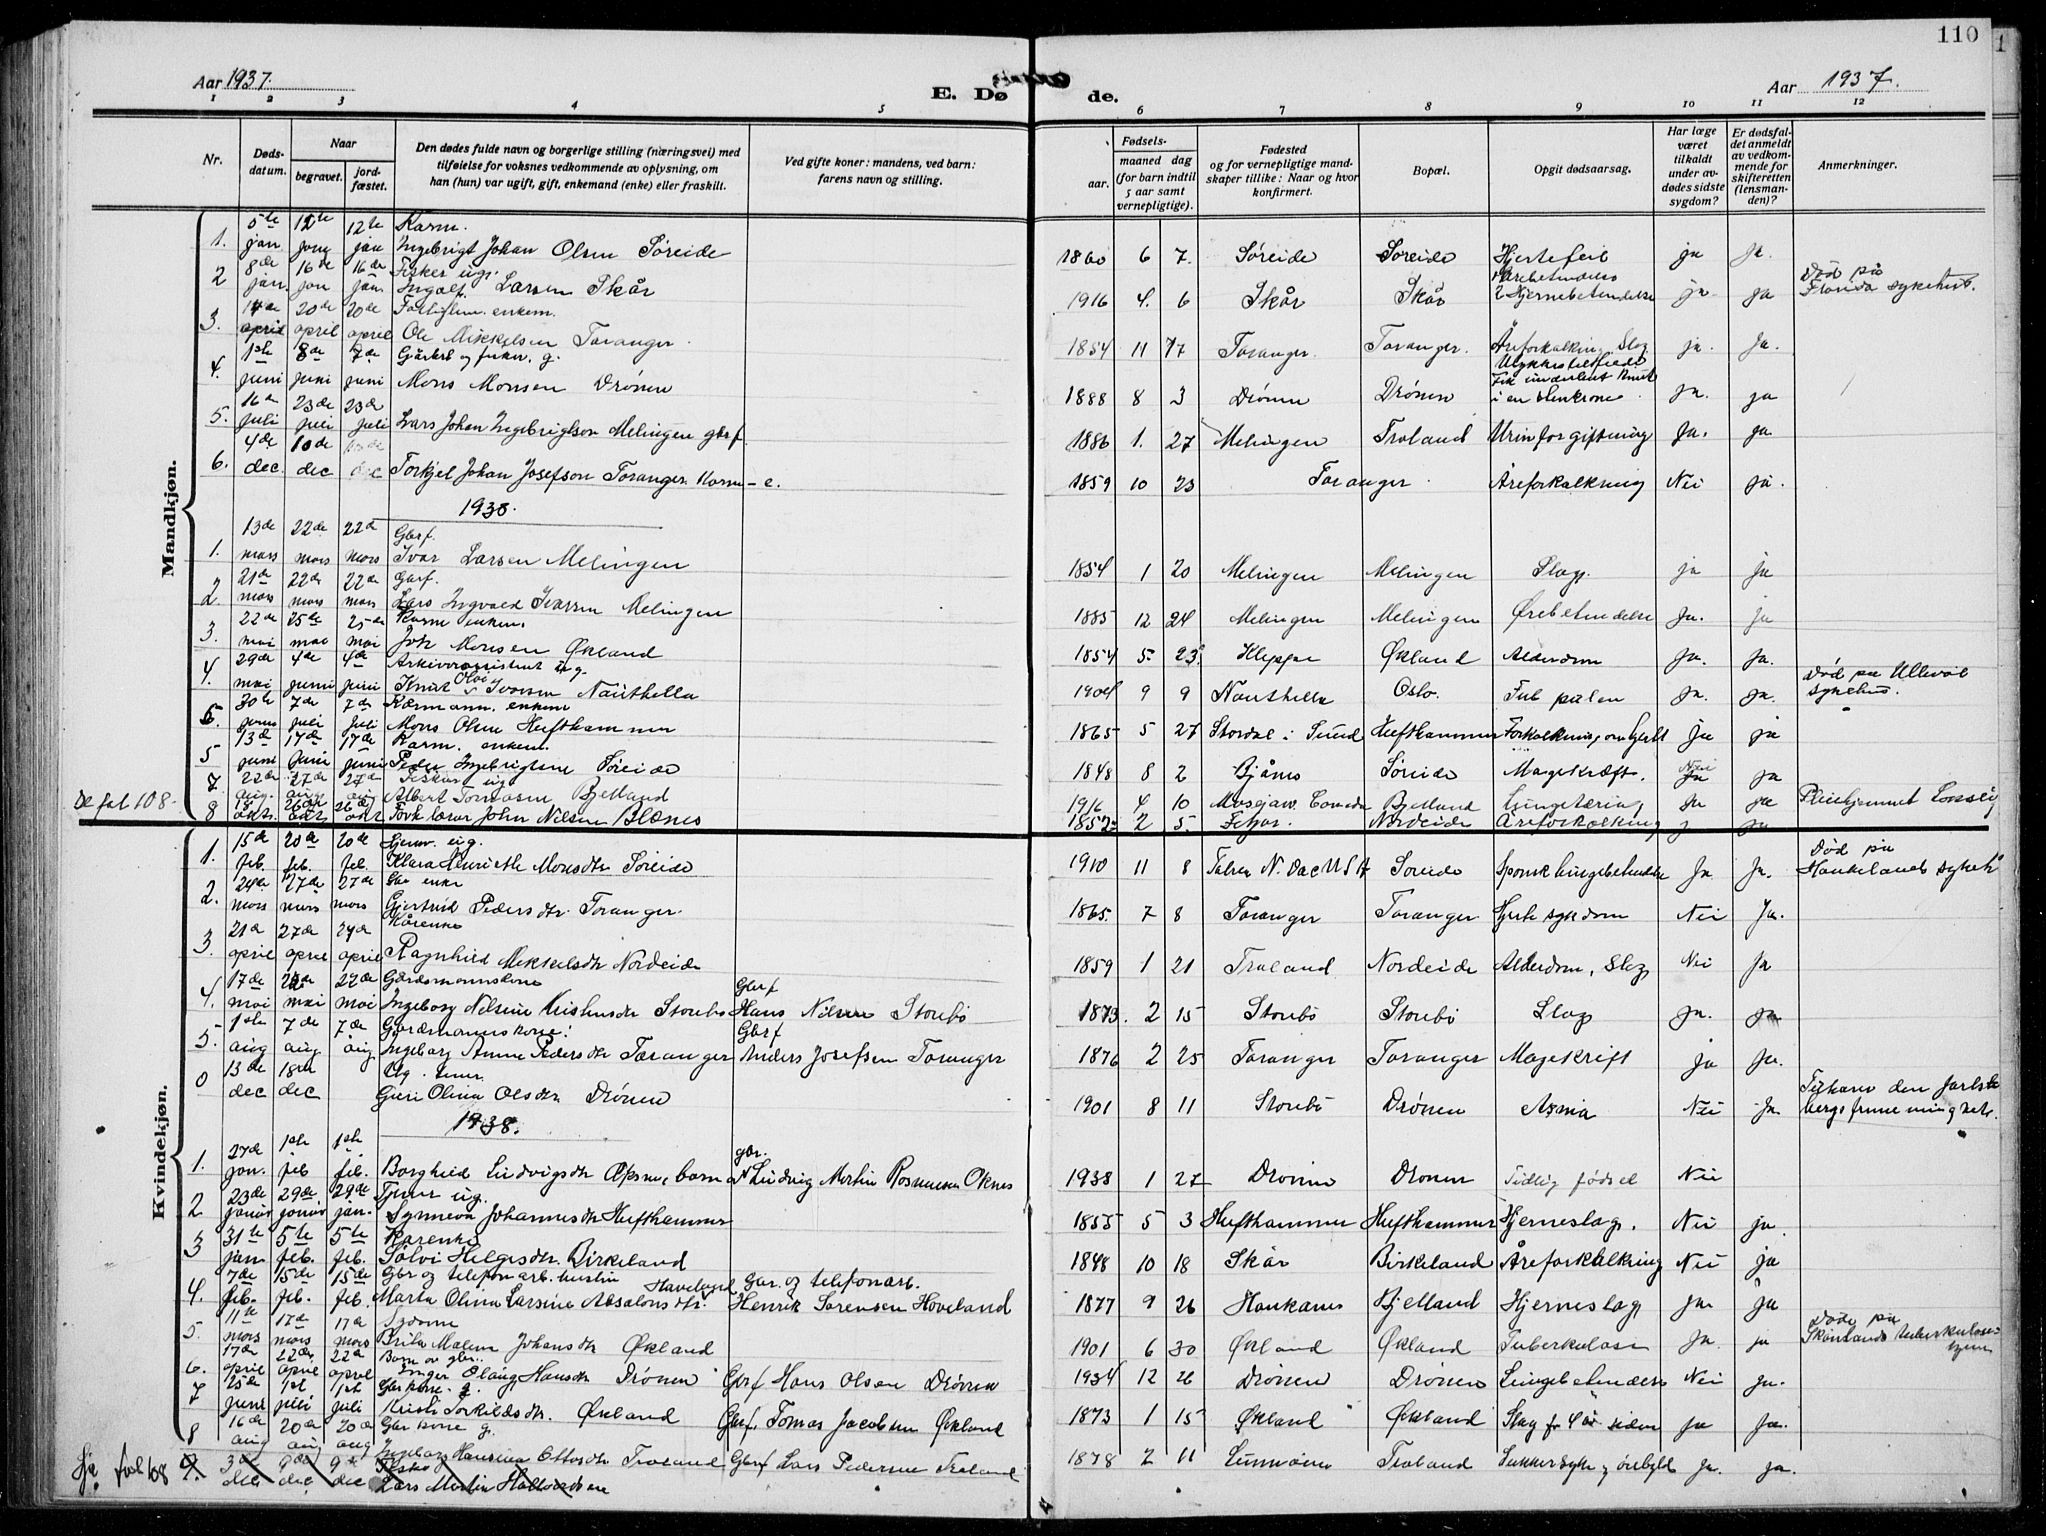 110
Aar 1937.
E. Døde.
Aar 1937.
1 2 3 4 5 6 7 8 9 10 11 12
Nr.
Døds-datum.
Naar
begravet.
jord-fæstet.
Den dødes fulde navn og borgerlige stilling (næringsvei) med
tilføielse for voksnes vedkommende av oplysning, om
han (hun) var ugift, gift, enkemand (enke) eller fraskilt.
Ved gifte koner: mandens, ved barn:
farens navn og stilling.
Fødsels-
aar.
maaned dag
(for barn indtil
5 aar samt
vernepligtige).
Fødested
og for vernepligtige mand-
skaper tillike: Naar og hvor
konfirmert.
Bopæl.
Opgit dødsaarsag.
Har læge
været
tilkaldt
under av-
dødes sidste
sygdom?
Er dødsfal-
det anmeldt
av vedkom-
mende for
skifteretten
(lensman-
den)?
Anmerkninger.
Mandkjøn.
1. 5te jan 12te jan 12te jan Karm. Ingebrigt Johan Olsen Søreide 1860 6 7. Søreide Søreide Hjertefeil ja Ja.
2 8de jan. 16de jan 16de jan. Fisker ug. Ingolf Larsen Skår 1916 4. 6 Skår Skår Hjernebetendelse ja. ja Død på Florida sykehus.
3. april 20de april 20de april enkem. Ole Mikkelsen Toranger 1854 11 17 Toranger. Toranger. Åreforkalkning Slag ja. Ja.
4. 1ste juni 8de juni 7de juni Gårdbr og fisker. g. Mons Monsen Drönen 1888 8 3 Drönen Drönen Ulykkestilfelde i en Ja. ja
5. 16de juli 23de juli 23de juli Lars Johan Ingebrigtson Melingen gbrf 1886 1. 27 Melingen Troland Urinforgiftning Ja. ja
6. 4de dec. 10de dec dec Torkjel Johan Josefson Toranger Karm - e. 1859 10 23 Toranger Åreforkalkning Nei ja.
1938.
1. 13de mars 22de mars 22de mars Gbrf. Ivar Larsen Melingen 1854 1 20 Melingen Melingen Slag. ja ja
2. 21de mars 22de mars 22de mars Gbrf. Lars Ingvald Ivarsen Melingen 1885 12 24 Melingen Melingen Ørebetendelse Ja. ja
3. 22de mai 25de mai 25de mai Karm enkem. Monsen Økland 1854 5. 23. Kleppe Økland Alderdom Ja. Ja.
4. 29de mai 4de juni 4de juni Arkivassistent ug. Knut Olai Ivarsen Nauthella 1904 9 9 Nauthella Oslo. ja. ja. Død på Ullevål sykehus.
6. 30te juni 7de juli 7de juli Kårmann. enkem Mons Olsen Hufthammer 1865 5 27 Stordal i Sund Hufthammer Forkalkning ja ja
5 13de juni 17de juni 17de juni Karm. enkem. Peder Ingebrigtsen Søreide 1848 8 2 Bjånes Søreide Magekræft. Nei ja
7 22de aug. 27de aug 27de aug Fisker ug Albert Tomasen Bjelland 1916 4 10 Mosejaw. Canada Bjelland Lungetæring Ja ja Pleiehjemmet
De fol 108.
8 18 okt. 26de okt 26de okt Forh lærer John Nilsen Blænes 1852 2 5. Fitjar. Nordeide Åreforkalkning ja
Kvindekjøn.
1. 15de feb. 20de feb. 20de feb. ug. Klara Henriette Monsdtr Søreide 1910 11 8 N. Dac USA Søreide Spansk lungebetendelse Ja Ja. Død på Haukeland sykeh
2. 24de mars 27de mars 27de mars enke Gjertrud Pedersdtr. Toranger. 1865. 7 8 Toranger Toranger Hjertesykdom Nei Ja.
3 21de april 27de april 27de april Kårenke Ragnhild Mikkelsdtr Nordeide 1859 1 21 Troland Nordeide Alderdom, Slag Nei ja
4. 17de mai 22de mai 22de mai Gårdsmannskone Ingeborg Nilsine Kristensdtr Storebø Gbrf Hans Nilsen Storebø 1873. 2 15 Storebö Storebö Slag ja. ja
5. 1ste aug 7de aug 7de aug Gårdmannskone: Ingeborg Anne Pedersdtr Toranger Gbrf Anders Josefsen Toranger 1876 2 25 Toranger Toranger Magekreft ja ja.
6 13de dec 18de dec Ug. tener. Guri Olina Olsdtr Drönen 1901 8 11 Storebö Drönen Asma Nei Ja
1938.
1. 27de jan. 1ste feb 1ste feb. Borghild Ludvigsdtr Øksnes, barn gbr. Ludvig Martin Rasmussen Oknes 1938 1 27 Drönen Drönen Tidlig födsel Nei
2 23de januar 29de januar 29de jan. Tjener ug. Synneva Johannesdtr Hufthammer 1855 5 3 Hufthammer Hufthammer Hjerneslag. Nei ja.
3 31te jan 5te feb. 5te feb. Karenke Sølvi Helgesdtr Birkeland 1848 10 18 Skår Birkeland Åreforkalkning Nei ja
4. 7de feb. 15de feb. 15de feb. Gbr og telefonarb. hustru Marta Olina Larsine Absalonsdtr. Haveland Gbr. og telefonarb. Henrik Sørensen Hoveland 1877 9 26 Haukanes Bjelland Hjerneslag ja. ja
5. 11te mars 17de mars 17de mars Brita Malene Johansdtr Økland 1901 6 30 Økland Økland Tuberkulose ja. ja Døde på Skånland tuberkulose-hjem
6. 17de april 22de april 22de april Barn av gbr. Inger Olaug Hansdtr Drönen Gbrf Hans Olsen Drönen 1934 12 26 Drönen Drönen Lungebetendelse Nei ja.
7 25de juni 1st juli 1st juli Gbr kone. g. Kristi Torkildsdtr. Økland Gbrf. Tomas Jacobsen Økland 1873 1 15 Økland Økland Slag for 4 år siden ja ja.
8 16de aug 20de aug 20de aug Gbr kone g. Ingeborg Hansina Ottosdtr Troland Gbrf Lars Pedersen Troland 1878 2 11 Troland Sukkersyke ja. ja.
Se fol 108 9. 3de dec 9de dec 9de dec Lars Martin